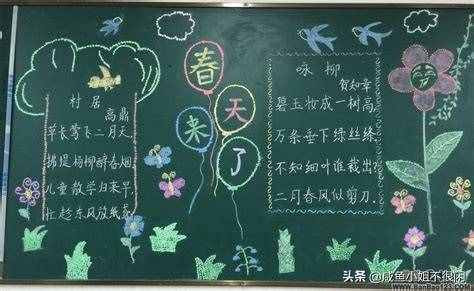 村居
高鼎
草长莺飞二月天
拂堤杨柳醉春烟
儿童散学归来早
忙趁东风放纸鸢
春天来了
咏柳
贺知章
碧玉妆成一树高,
万条垂下绿丝绦.
不知细叶谁裁出?
二月春风似剪刀.
头条 @咸鱼小姐不很
www.BanBao123.com